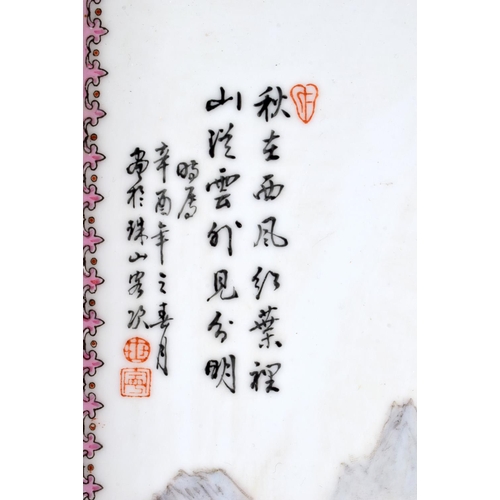 秋在西風紅葉裡
山從雲外見分明
時屬
辛酉年之春月
寫於珠山客次